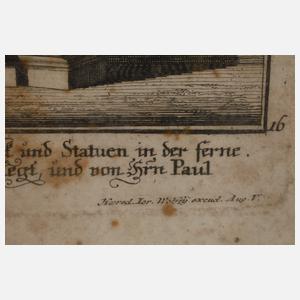 16
und Statuen in der ferne.
und von Hrn Paul
Hæred. Ier. Wolffij excud. Aug. V.